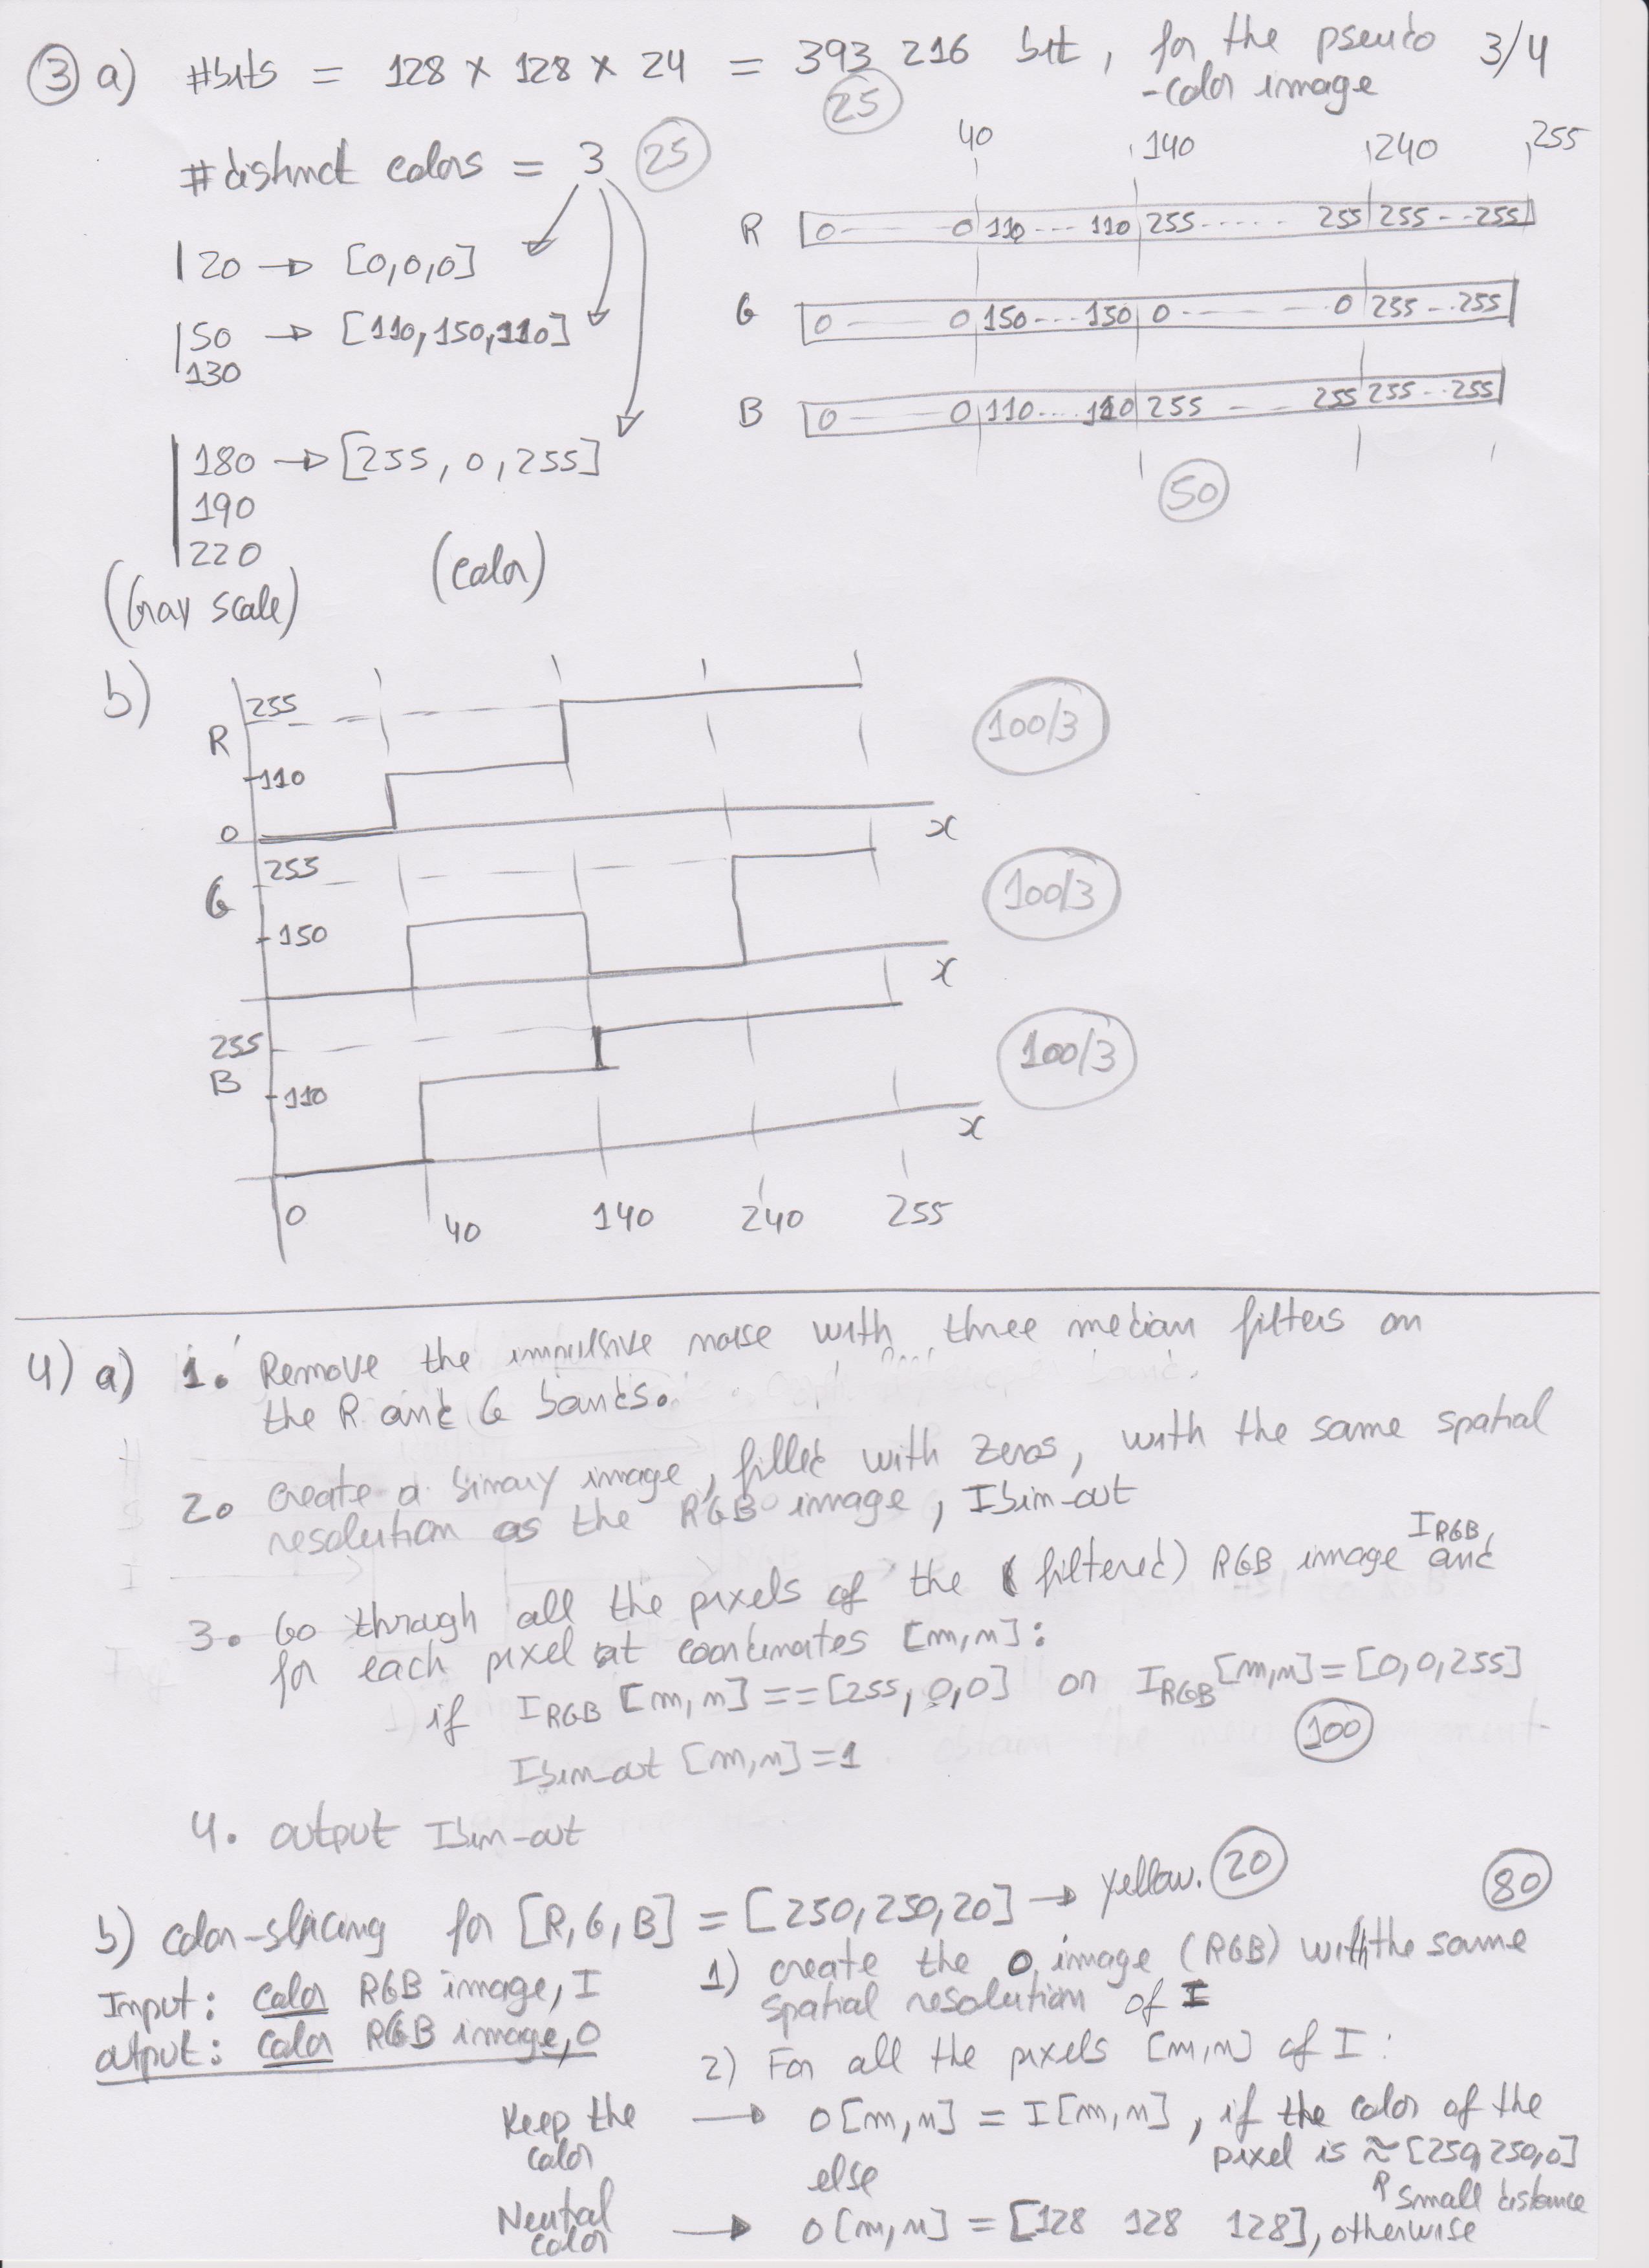 3 a) #bits = 128 × 128 × 24 = 393 216 bit, for the pseudo 3/4
-color image
25
#distinct colors = 3 25
40 140 240 255
R 0 0 110 --- 110 255 ----- 255 255 -- 255
G 0 0 150 --- 150 0 0 255 -- 255
B 0 0 110 ... 110 255 255 255 -- 255
50
20 → [0,0,0]
50 → [110,150,110]
130
180 → [255, 0, 255]
190
220
(Gray scale) (color)
b)
255
R
110
0
x
100/3
255
G
150
x
100/3
255
B
110
x
100/3
0 40 140 240 255
4) a) 1. Remove the impulsive noise with three median filters on
the R and G bands.
2. create a binary image, filled with zeros, with the same spatial
resolution as the RGB image, Ibin-out
3. Go through all the pixels of the (filtered) RGB image IRGB and
for each pixel at coordinates [m,n]:
if IRGB [m,n] == [255, 0,0] or IRGB [m,n] = [0,0,255]
100
Ibin-out [m,n] = 1
4. output Ibin-out
b) color-slicing for [R,G,B] = [250,250,20] → yellow. 20 80
Input: color RGB image, I
output: color RGB image, O
1) create the O image (RGB) with the same
spatial resolution of I
2) For all the pixels [m,n] of I:
Keep the color → O[m,n] = I[m,n], if the color of the
pixel is ≈ [250,250,0]
small distance
else
Neutal color → O[m,n] = [128 128 128], otherwise